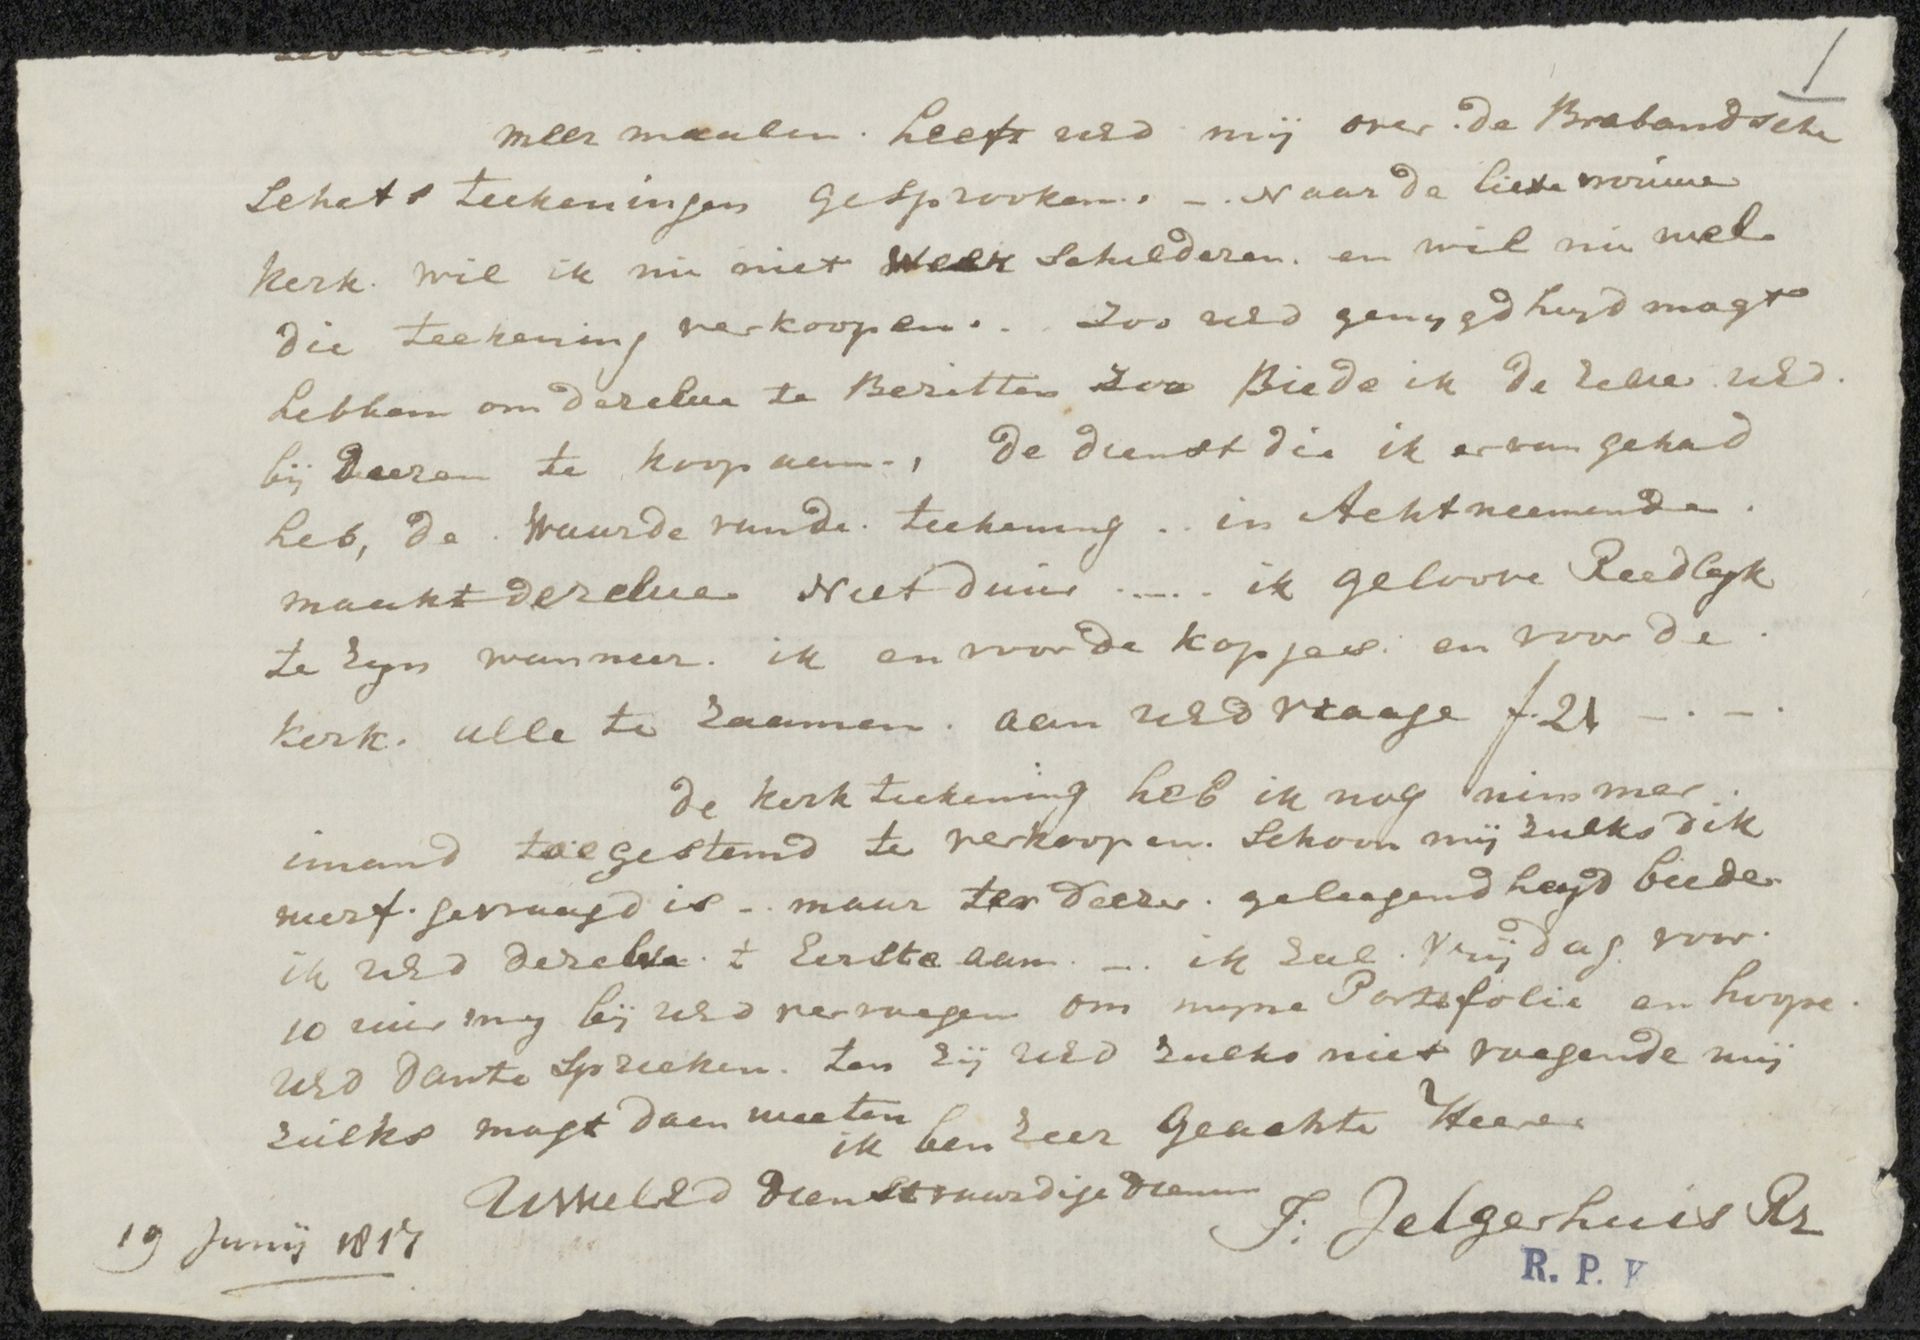 1
meer maalen. heeft UEd mij over de Brabandsche
schets teekeningen gesprooken. — Naar de lieve vrouwe
kerk. wil ik nu niet weer schilderen. en wil nu wel
die teekening verkoopen. Zoo UEd genygdheyd magt
hebben om dezelve te Bezitten Zoo Biede ik de zelve UEd.
bij deezen te koop aan., De dienst die ik er van gehad
heb, de Waarde van de teekening .. in Acht neemende.
maakt dezelve Niet duur ..... ik geloove Reedlyk
te zyn wanneer. ik en voor de kopjes en voor de
kerk. alle te zaamen. aan UEd vraage f. 21 — . — .
De kerk teekening heb ik nog nimmer
imand toegestemd te verkoopen. schoon mij zulks dik
werf. gevraagd is — maar ter deezer. geleegendheyd biede
ik UEd dezelve. t Eerste aan. — . ik zal. Vrijdag. voor.
10 uur my bij UEd vervoegen om myne Portefolie en hoope.
UEd dan te spreeken. ten zij UEd zulks niet voegende mij
zulks magt doen weeten
ik ben zeer Geachte Heere
UWelEd Dienstvaardige Dienaar
J. Jelgerhuis Rz
19 Junij 1817
R. P. K